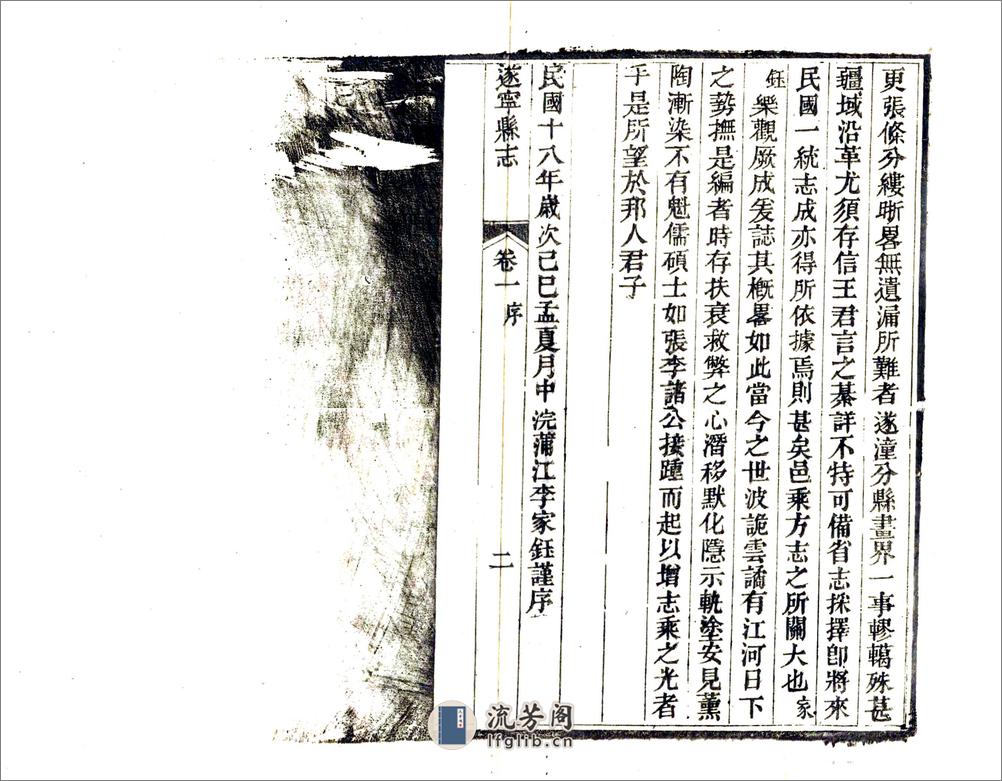 更張條分縷晰畧無遺漏所難者遂潼分縣畫界一事轇轕殊甚
疆域沿革尤須存信王君言之綦詳不特可備省志採擇卽將來
民國一統志成亦得所依據焉則甚矣邑乘方志之所關大也家
鈺樂觀厥成爰誌其概畧如此當今之世波詭雲譎有江河日下
之勢撫是編者時存扶衰救弊之心潛移默化隱示軌塗安見薰
陶漸染不有魁儒碩士如張李諸公接踵而起以增志乘之光者
乎是所望於邦人君子
民國十八年歲次己巳孟夏月中浣蒲江李家鈺謹序
遂寧縣志 卷一 序 二
流芳阁
lfglib.cn